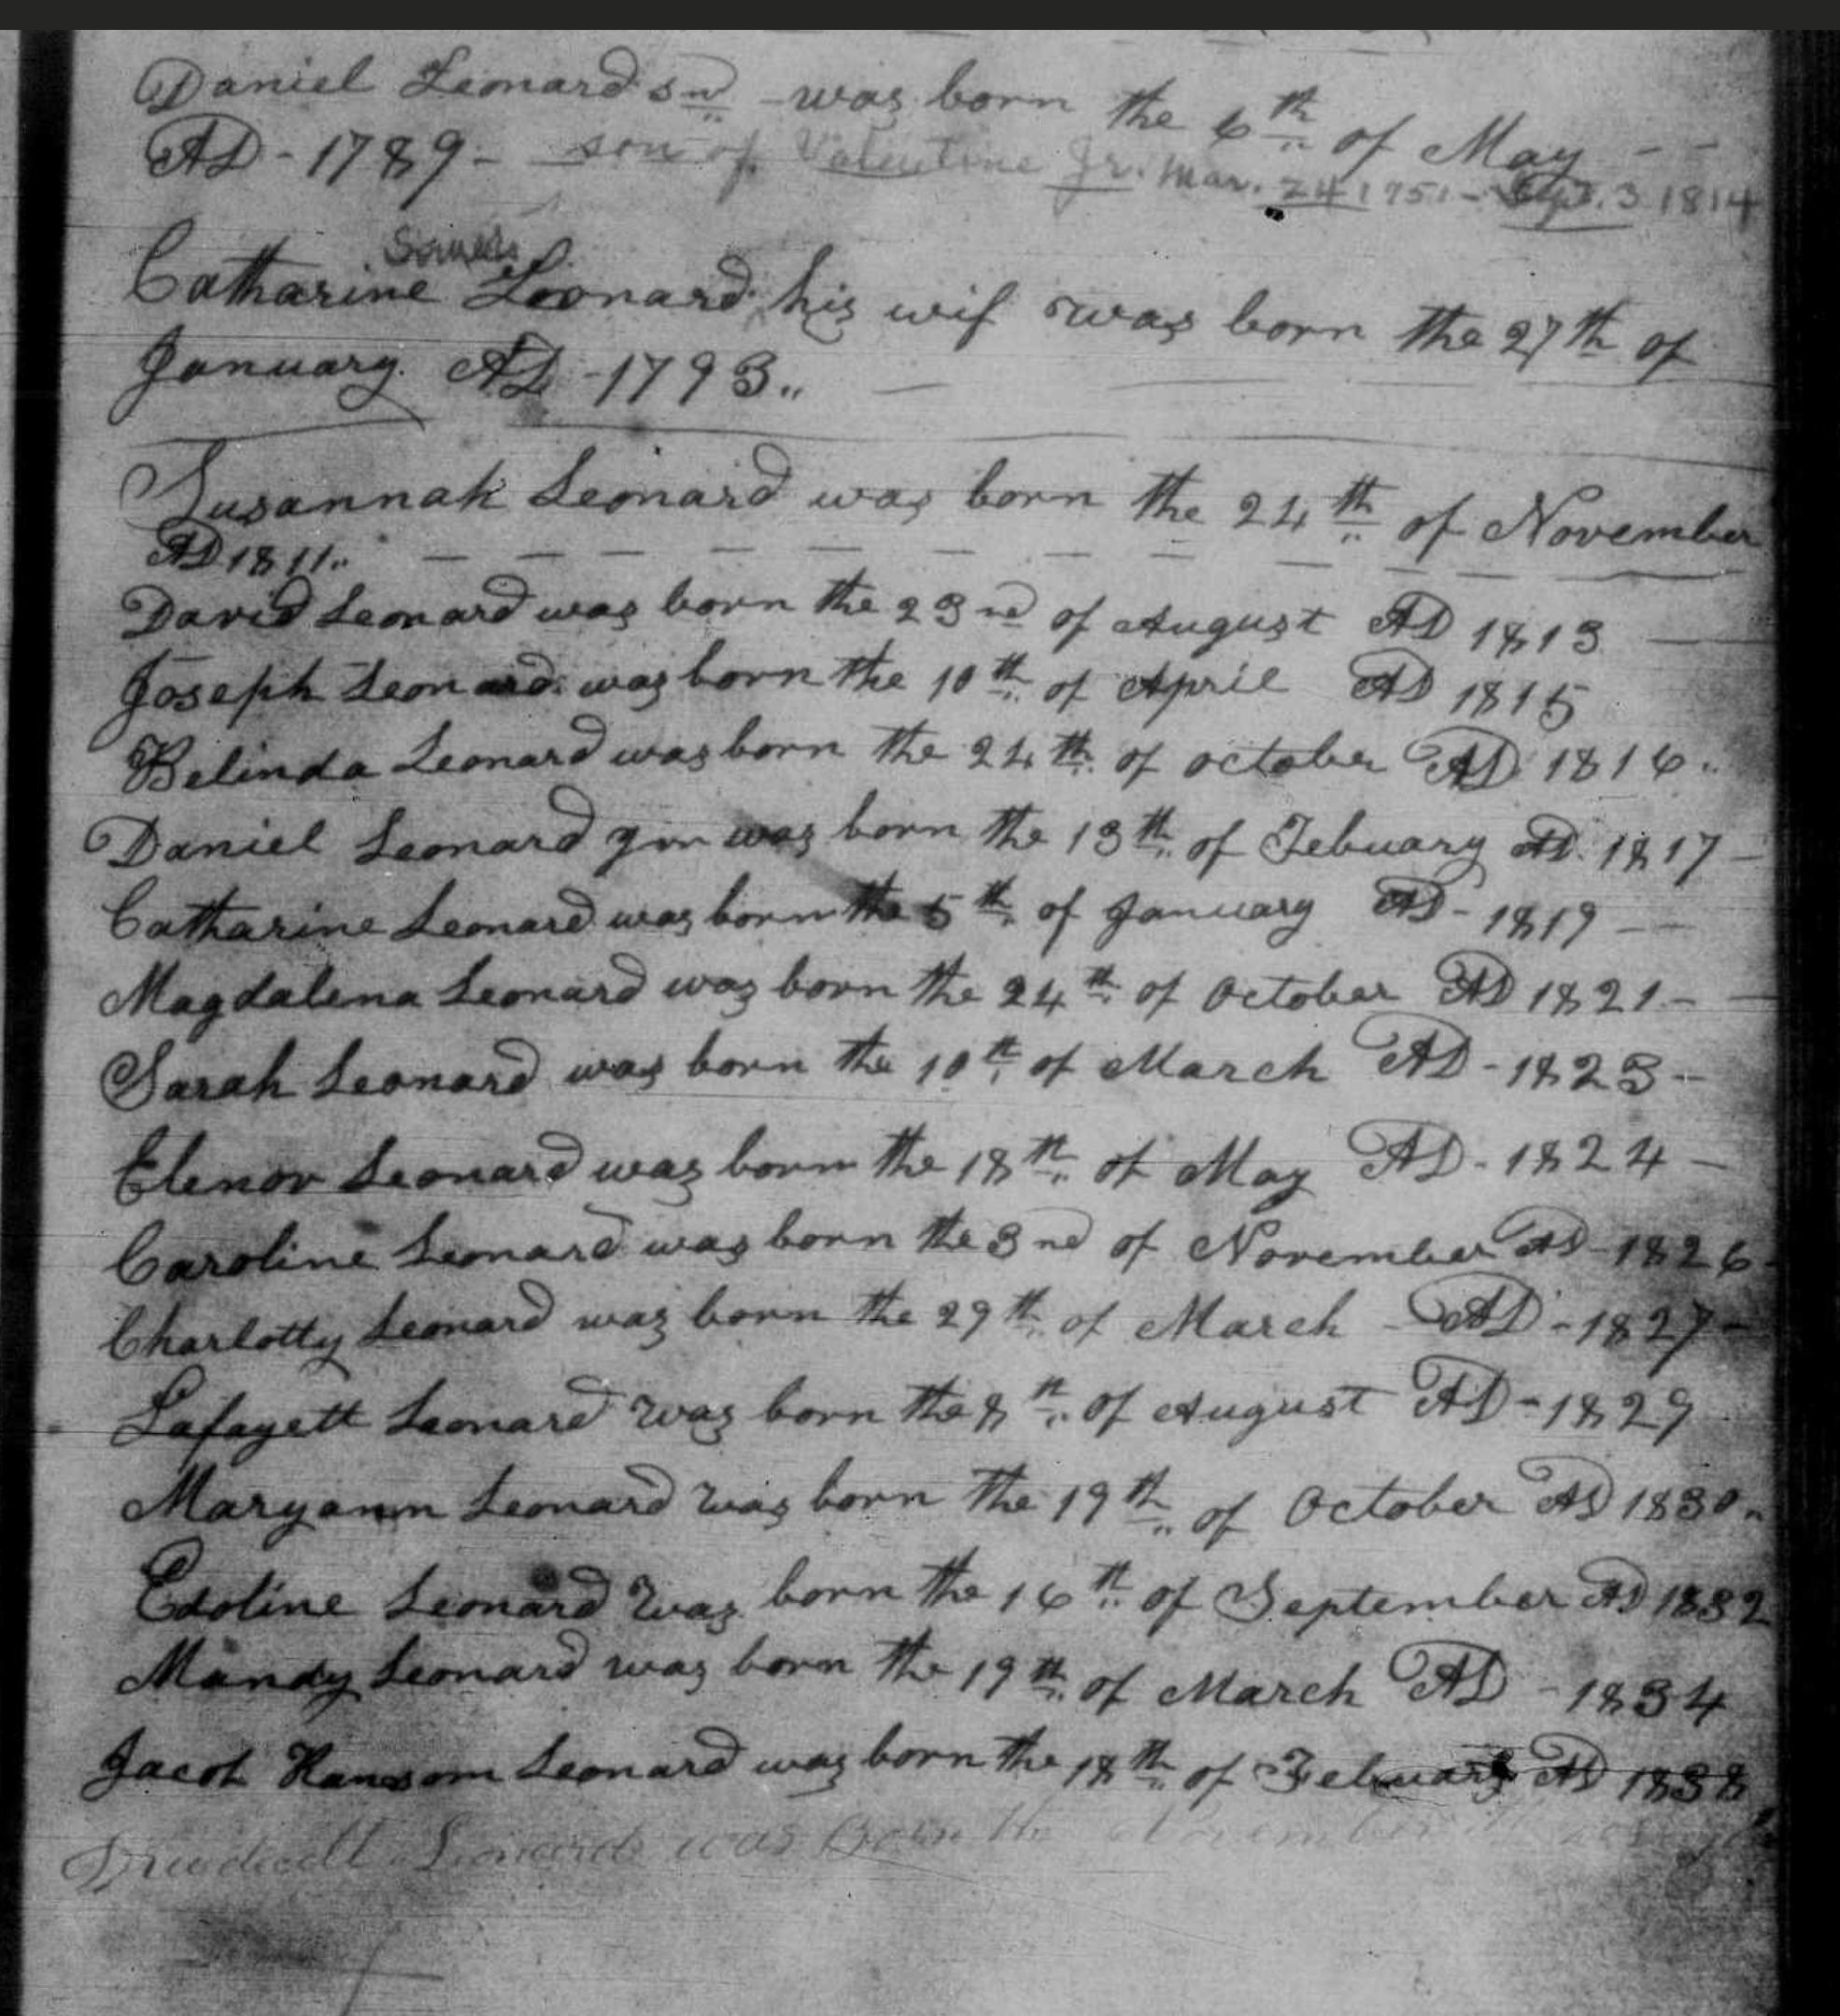 Daniel Leonard snr was born the 6th of May
AD - 1789 - son of Valentine Jr. Mar. 24 1751 - Sept. 3 1814
Catharine Leonard his wif was born the 27th of
January AD - 1793
Susannah Leonard was born the 24th of November
AD 1811
David Leonard was born the 23rd of August AD 1813
Joseph Leonard was born the 10th of April AD 1815
Belinda Leonard was born the 24th of october AD 1816
Daniel Leonard was born the 13th of Febuary AD 1817
Catharine Leonard was born the 5th of January AD - 1819
Magdalena Leonard was born the 24th of October AD 1821
Sarah Leonard was born the 10th of March AD - 1823
Elenor Leonard was born the 18th of May AD - 1824
Caroline Leonard was born the 3rd of November AD - 1826
Charlotty Leonard was born the 29th of March AD - 1827
Lafayett Leonard was born the 8th of August AD - 1829
Maryann Leonard was born the 19th of October AD 1830
Edoline Leonard was born the 16th of September AD 1832
Mandy Leonard was born the 19th of March AD - 1834
Jacob Ransom Leonard was born the 18th of Febuary AD 1838
Leonard was Born the November